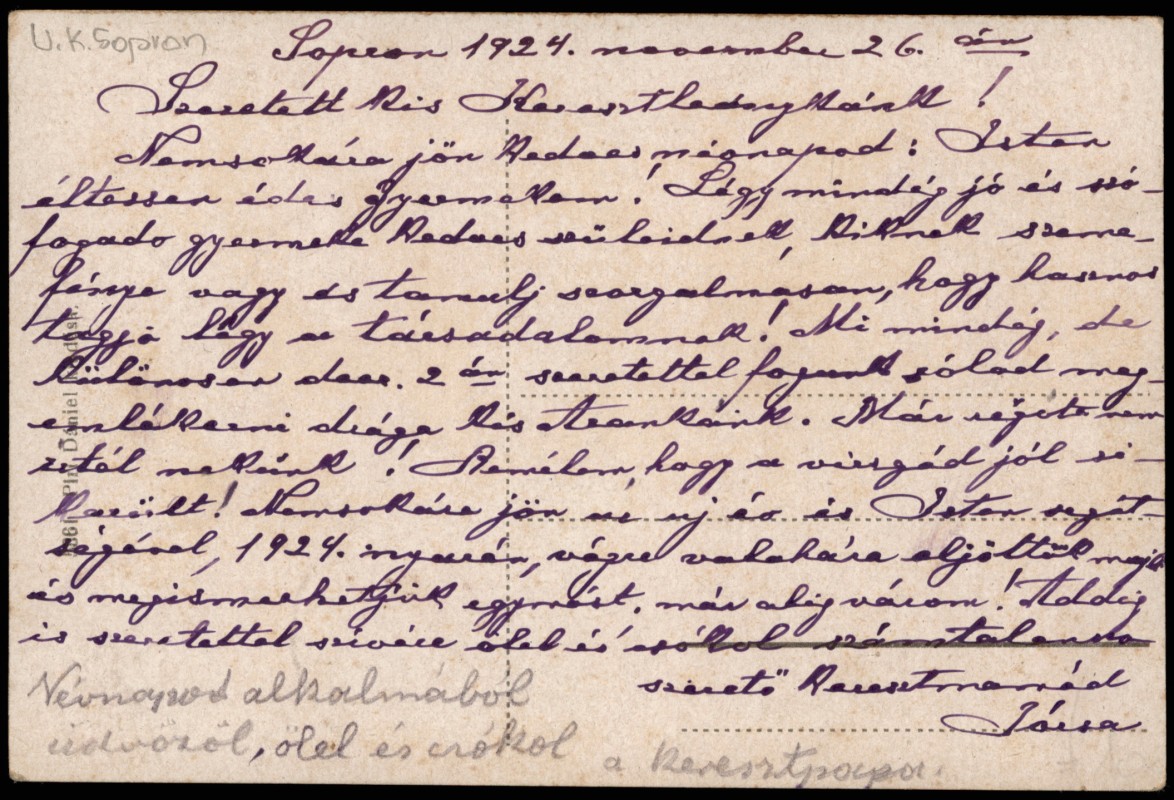 U.K. Sopron
Sopron 1924. november 26. án
Szeretett kis Keresztleánykánk!
Nemsokára jön kedves névnapod: Isten
éltessen édes gyermekem! Légy mindég jó és szó-
fogado gyermeke kedves szüleidnek, kiknek szeme-
fénye vagy és tanulj szorgalmasan, hogy hasznos
tagja légy a társadalomnak! Mi mindég, de
különosen decz. 2 án szeretettel fogunk rólad meg-
emlékezni drága kis Arankánk. Már régote nem
irtál nekünk! Remélem, hogy a vizsgád jól si-
került! Nemsokára jön az uj év és Isten segit-
ségével, 1924. nyarán, végre valahára eljöttök majd
és megismerhetjük egymást, már alig várom! Addig
is szeretettel szivére ölel és csókol számtalanszo
szerető keresztmamád
Józsa
Névnapod alkalmából
üdvözöl, ölel és csókol
a keresztpapa.
Dániel